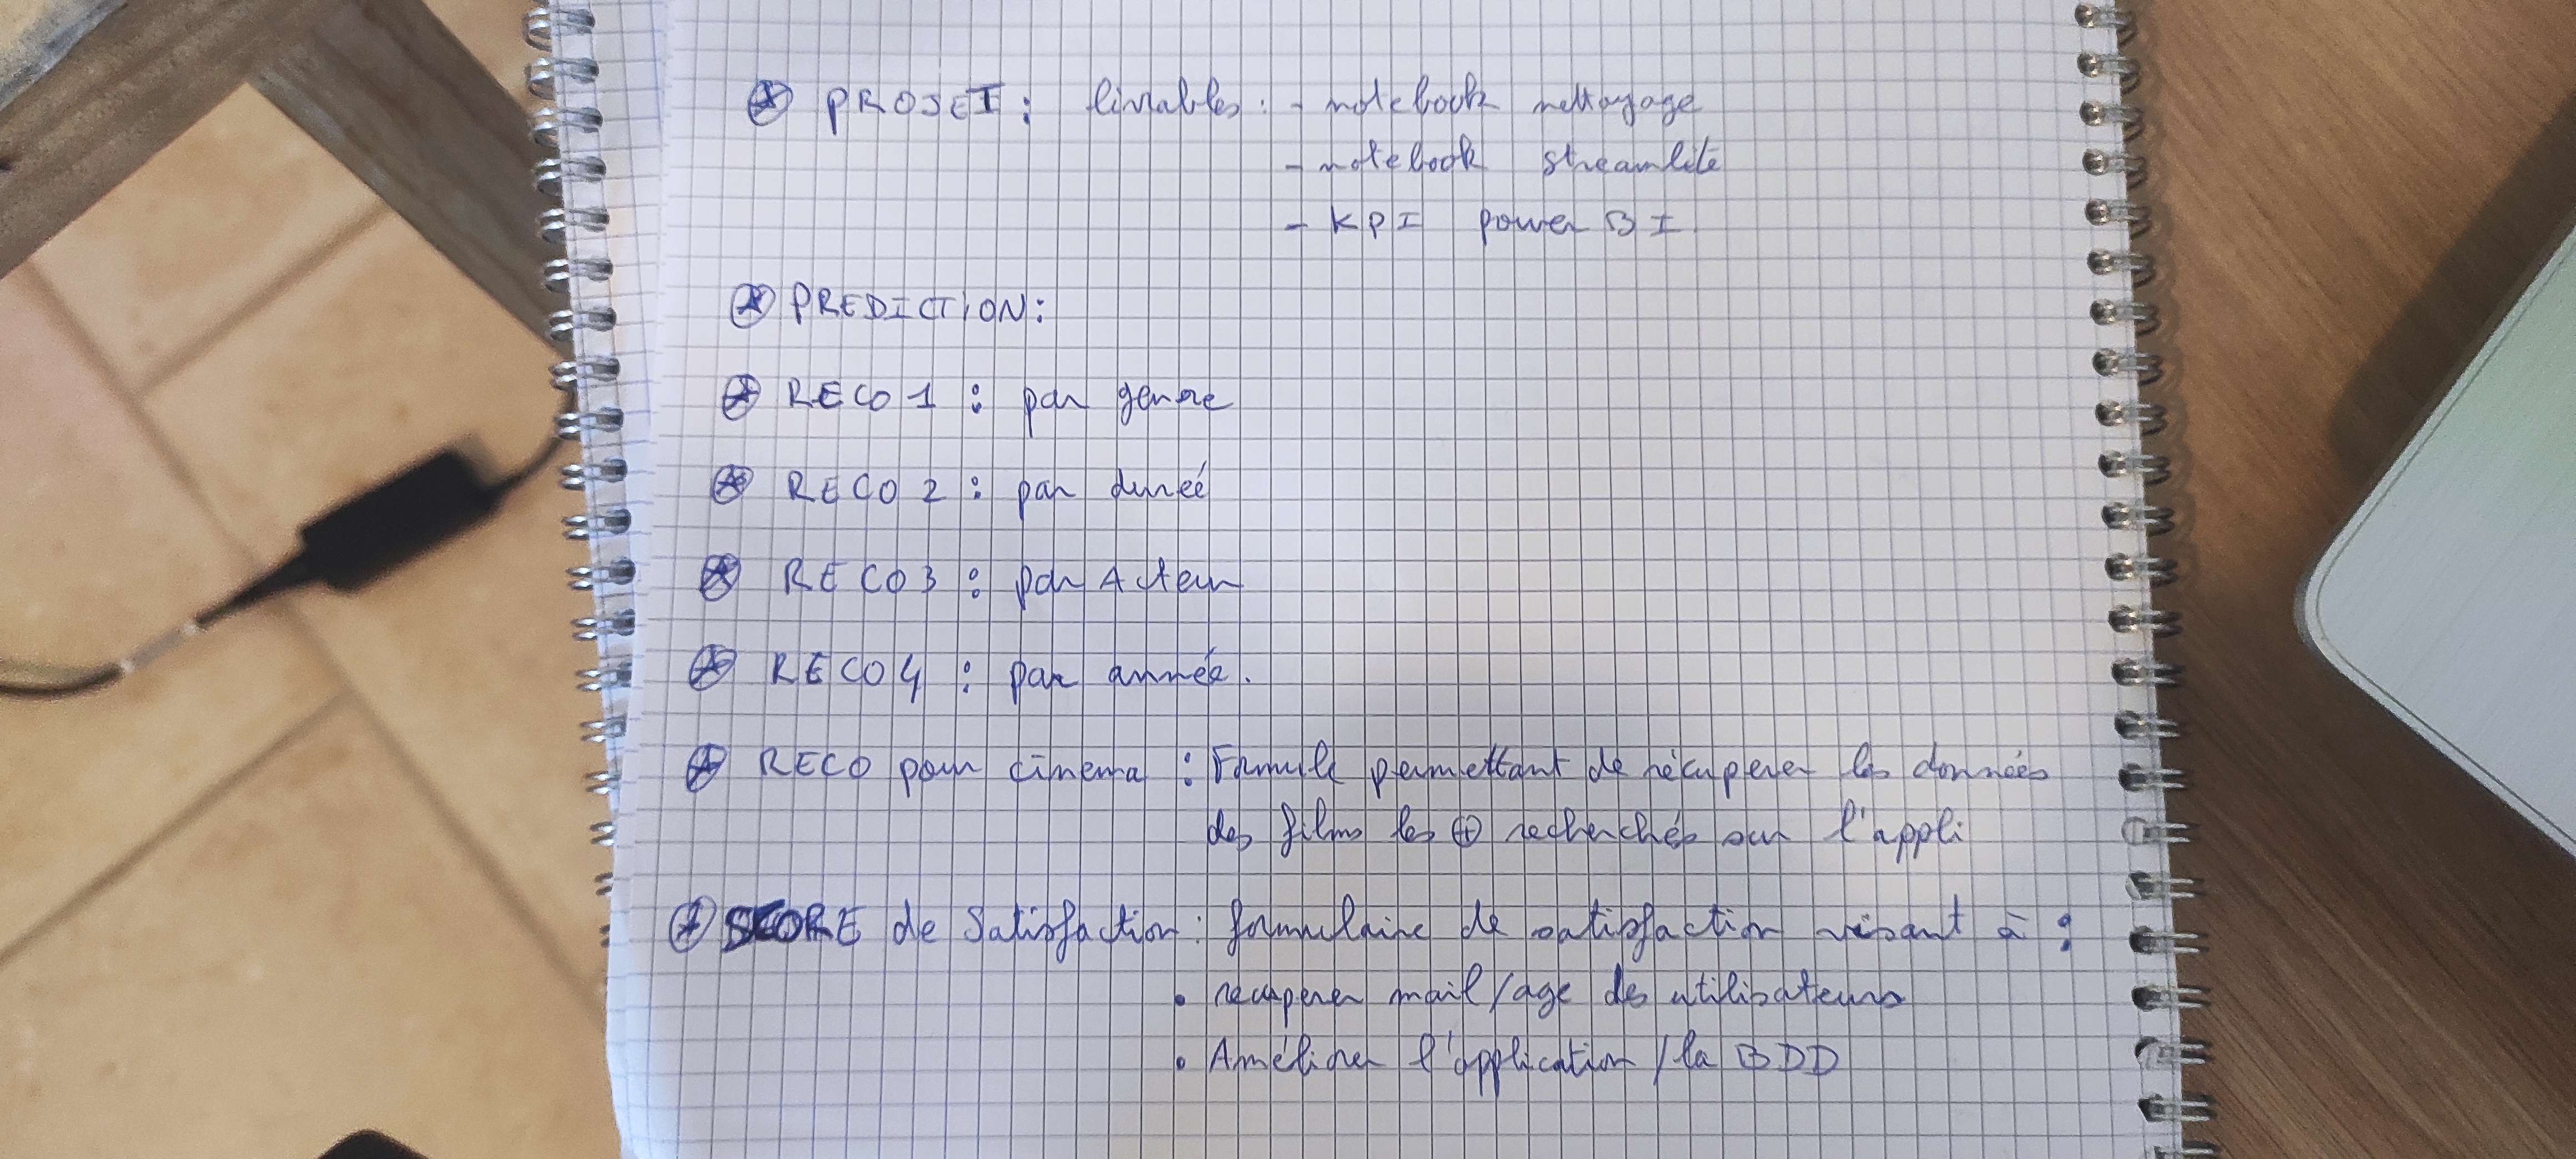 PROJET : livrables : - notebook nettoyage
- notebook streamlite
- KPI power BI
PREDICTION :
RECO 1 : par genre
RECO 2 : par dureé
RECO 3 : par Acteur
RECO 4 : par année.
RECO pour cinema : Formule permettant de récuperer les données
des films les ⊕ recherchés sur l'appli
SCORE de Satisfaction : formulaire de satisfaction visant à :
• recuperer mail/age des utilisateurs
• Améliorer l'application / la BDD